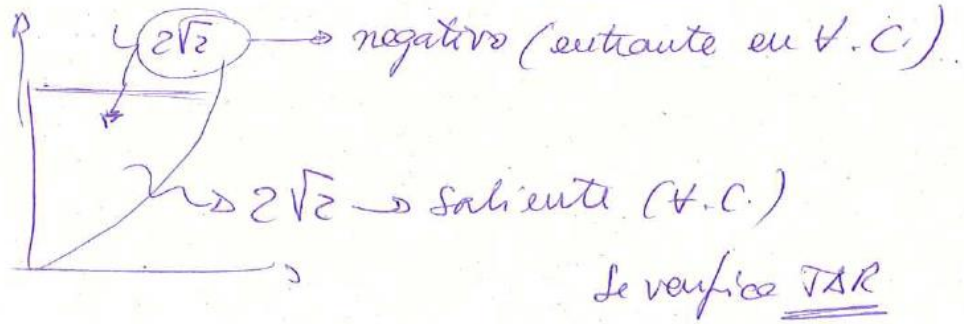 2√2 → negativo (entrante en V.C.)
2√2 → saliente (V.C.)
Se verifica TAR